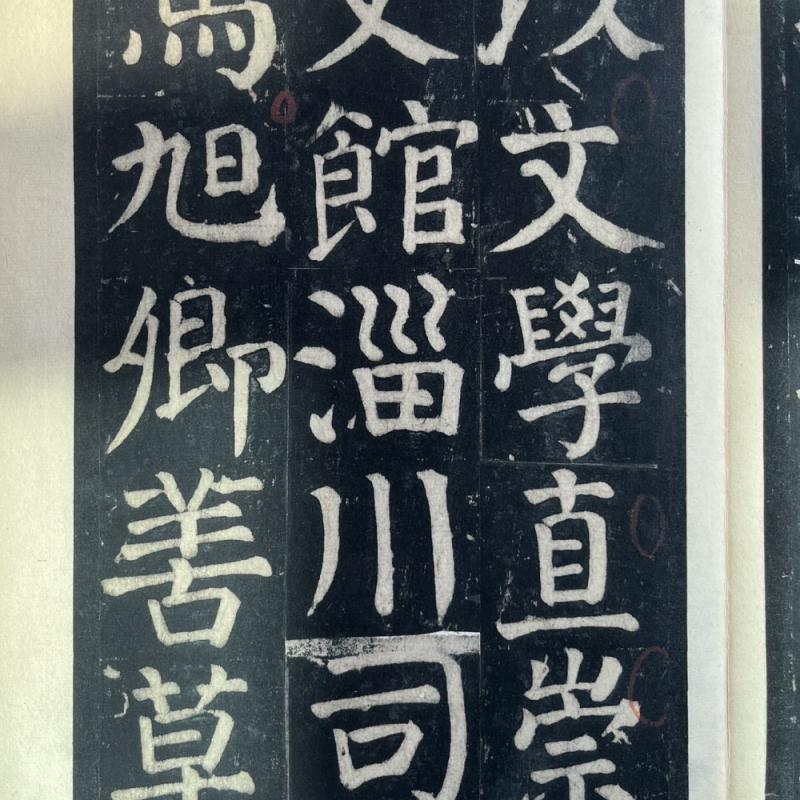 文學直崇
文館淄川司
馬旭卿善草